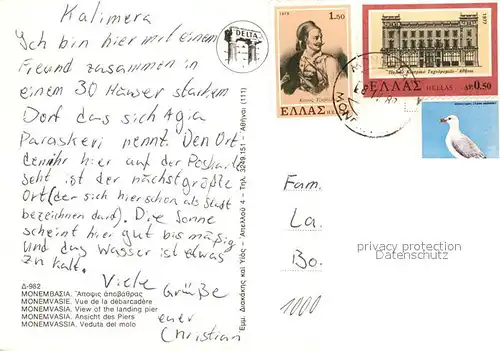 Kalimera
Ich bin hier mit einem
Freund zusammen in
einem 30 Häuser starken
Dorf das sich Agia
Paraskeri nennt. Den Ort
den ihr hier auf der Postkarte
seht ist der nächstgrößte
Ort (der sich hier schon als Stadt
bezeichnen darf). Die Sonne
scheint hier gut bis mäßig
und das Wasser ist etwas
zu kalt.
Viele
Grüße
euer
Christian
Δ-982
ΜΟΝΕΜΒΑΣΙΑ. Ἄποψις ἀποβάθρας
MONEMVASIE. Vue de la débarcadère
MONEMVASIA. View of the landing pier
MONEMVASIA. Ansicht des Piers
MONEMVASSIA. Veduta del molo
DELTA
Ἐμμ. Διακάκης καὶ Υἱὸς - Ἀπελλοῦ 4 - Τηλ. 3249.151 - Ἀθῆναι (111)
1979
1.50
ΕΛΛΑΣ
1977
ΕΛΛΑΣ HELLAS ΔΡ. 0.50
Fam.
La.
Bo.
1000
privacy protection
oldthing